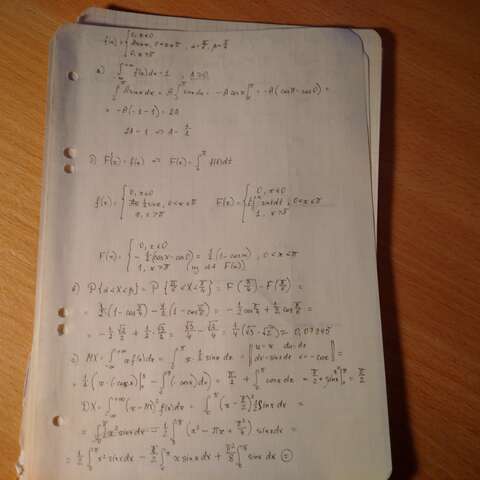 f(x) = { 0, x≤0
A sin x, 0<x≤π , α=π/6, β=π/4
0, x>π
а) ∫_{-∞}^{+∞} f(x)dx = 1 , A>0
∫_0^π A sin x dx = A ∫_0^π sin x dx = -A cos x |_0^π = -A(cos π - cos 0) =
= -A(-1-1) = 2A
2A = 1 => A = 1/2
б) F'(x) = f(x) => F(x) = ∫ f(t)dt
f(x) = { 0, x≤0
1/2 sin x, 0<x≤π
x>π
F(x) = { 0, x≤0
sin t dt, 0<x≤π
1, x>π
F(x) = { 0, x≤0
-1/2 (cos x - cos 0) = 1/2 (1 - cos x) , 0<x≤π
1, x>π
F(x))
в) P{α<X<β} = P{π/6<X<π/4} = F(π/4) - F(π/6) =
= 1/2 (1 - cos π/4) - 1/2 (1 - cos π/6) = -1/2 cos π/4 + 1/2 cos π/6 =
= -1/2 · √2/2 + 1/2 · √3/2 = √3/4 - √2/4 = 1/4 (√3 - √2) ≈ 0,07945
г) MX = ∫_{-∞}^{+∞} x f(x)dx = ∫_0^π x · 1/2 sin x dx = || u=x du=dx
dv=sin x dx v=-cos x || =
= 1/2 (x · (-cos x)|_0^π - ∫_0^π (-cos x)dx) = π/2 + ∫_0^π cos x dx = π/2 + sin x |_0^π = π/2
DX = ∫_{-∞}^{+∞} (x - MX)² f(x)dx = ∫_0^π (x - π/2)² 1/2 sin x dx =
= ∫_0^π 1/2 x² sin x dx = 1/2 ∫_0^π (x² - πx + π²/4) sin x dx =
= 1/2 ∫_0^π x² sin x dx - π/2 ∫_0^π x sin x dx + π²/8 ∫_0^π sin x dx =